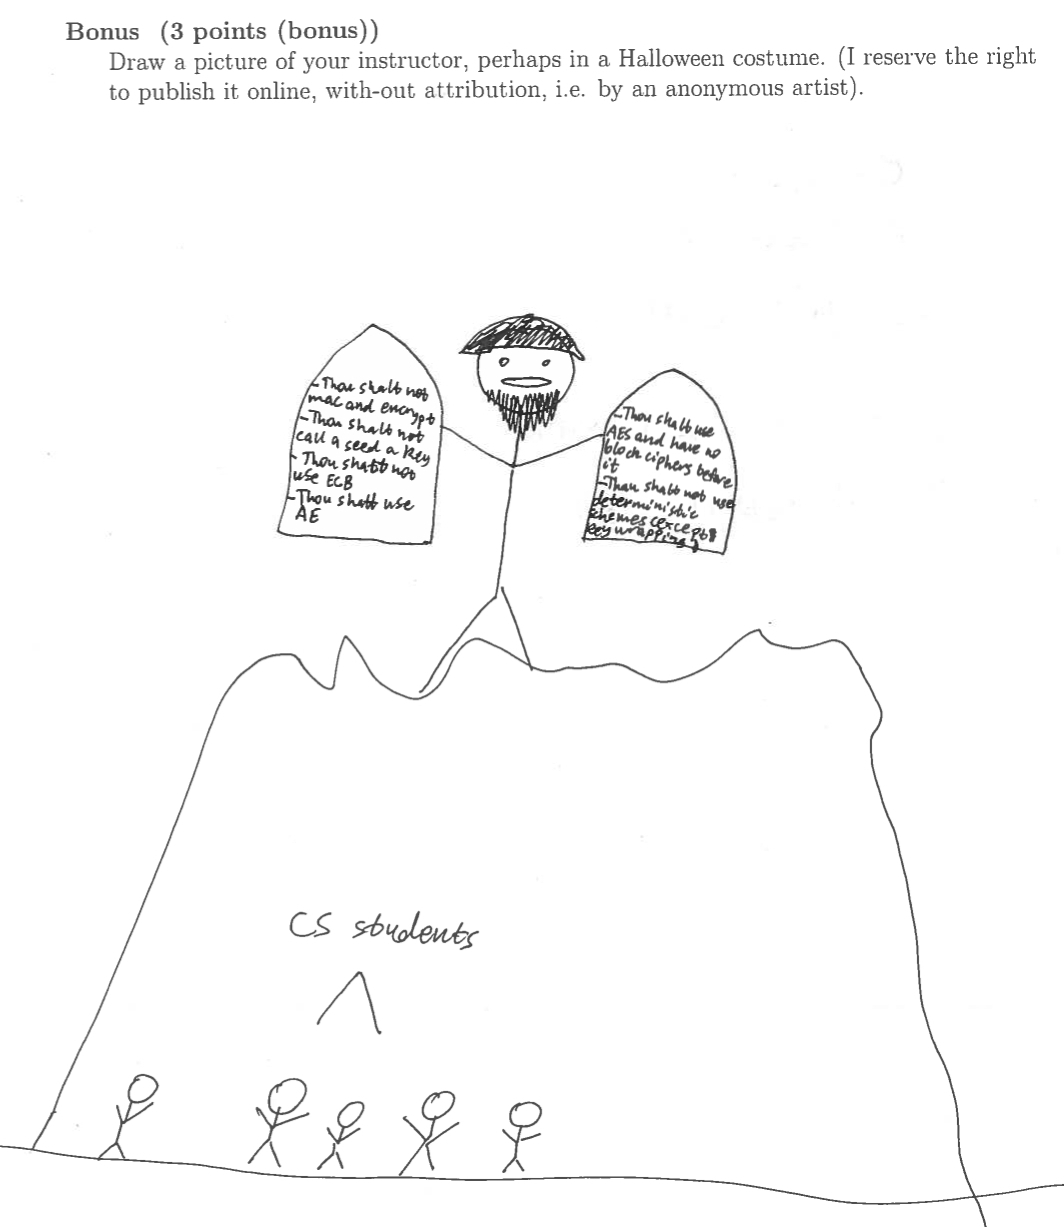 Bonus (3 points (bonus))
Draw a picture of your instructor, perhaps in a Halloween costume. (I reserve the right
to publish it online, with-out attribution, i.e. by an anonymous artist).
-Thou shalt not
mac and encrypt
-Thou shalt not
call a seed a key
- Thou shalt not
use ECB
-Thou shalt use
AE
-Thou shalt use
AES and have no
block ciphers before
it
-Thou shalt not use
deterministic
schemes (except
key wrapping)
CS students